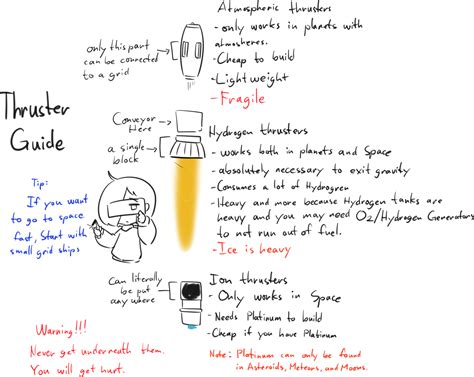 Thruster
Guide
only this part
can be connected
to a grid
Atmospheric thrusters
- only works in planets with
atmosheres.
- Cheap to build
- Light weight
- Fragile
Conveyor
Here
a single
block
Hydrogen thrusters
- works both in planets and Space
- absolutely necessary to exit gravity
- Consumes a lot of Hydrogren
- Heavy and more because Hydrogen tanks are
heavy and you may need O2/Hydrogen Generators
to not run out of fuel.
- Ice is heavy
Tip:
If you want
to go to space
fast, Start with
small grid ships
Can literally
be put
any where
Ion thrusters
- Only works in Space
- Needs Platinum to build
- Cheap if you have Platinum
Note: Platinum can only be found
in Asteroids, Meteors, and Moons.
Warning!!!
Never get underneath them.
You will get hurt.